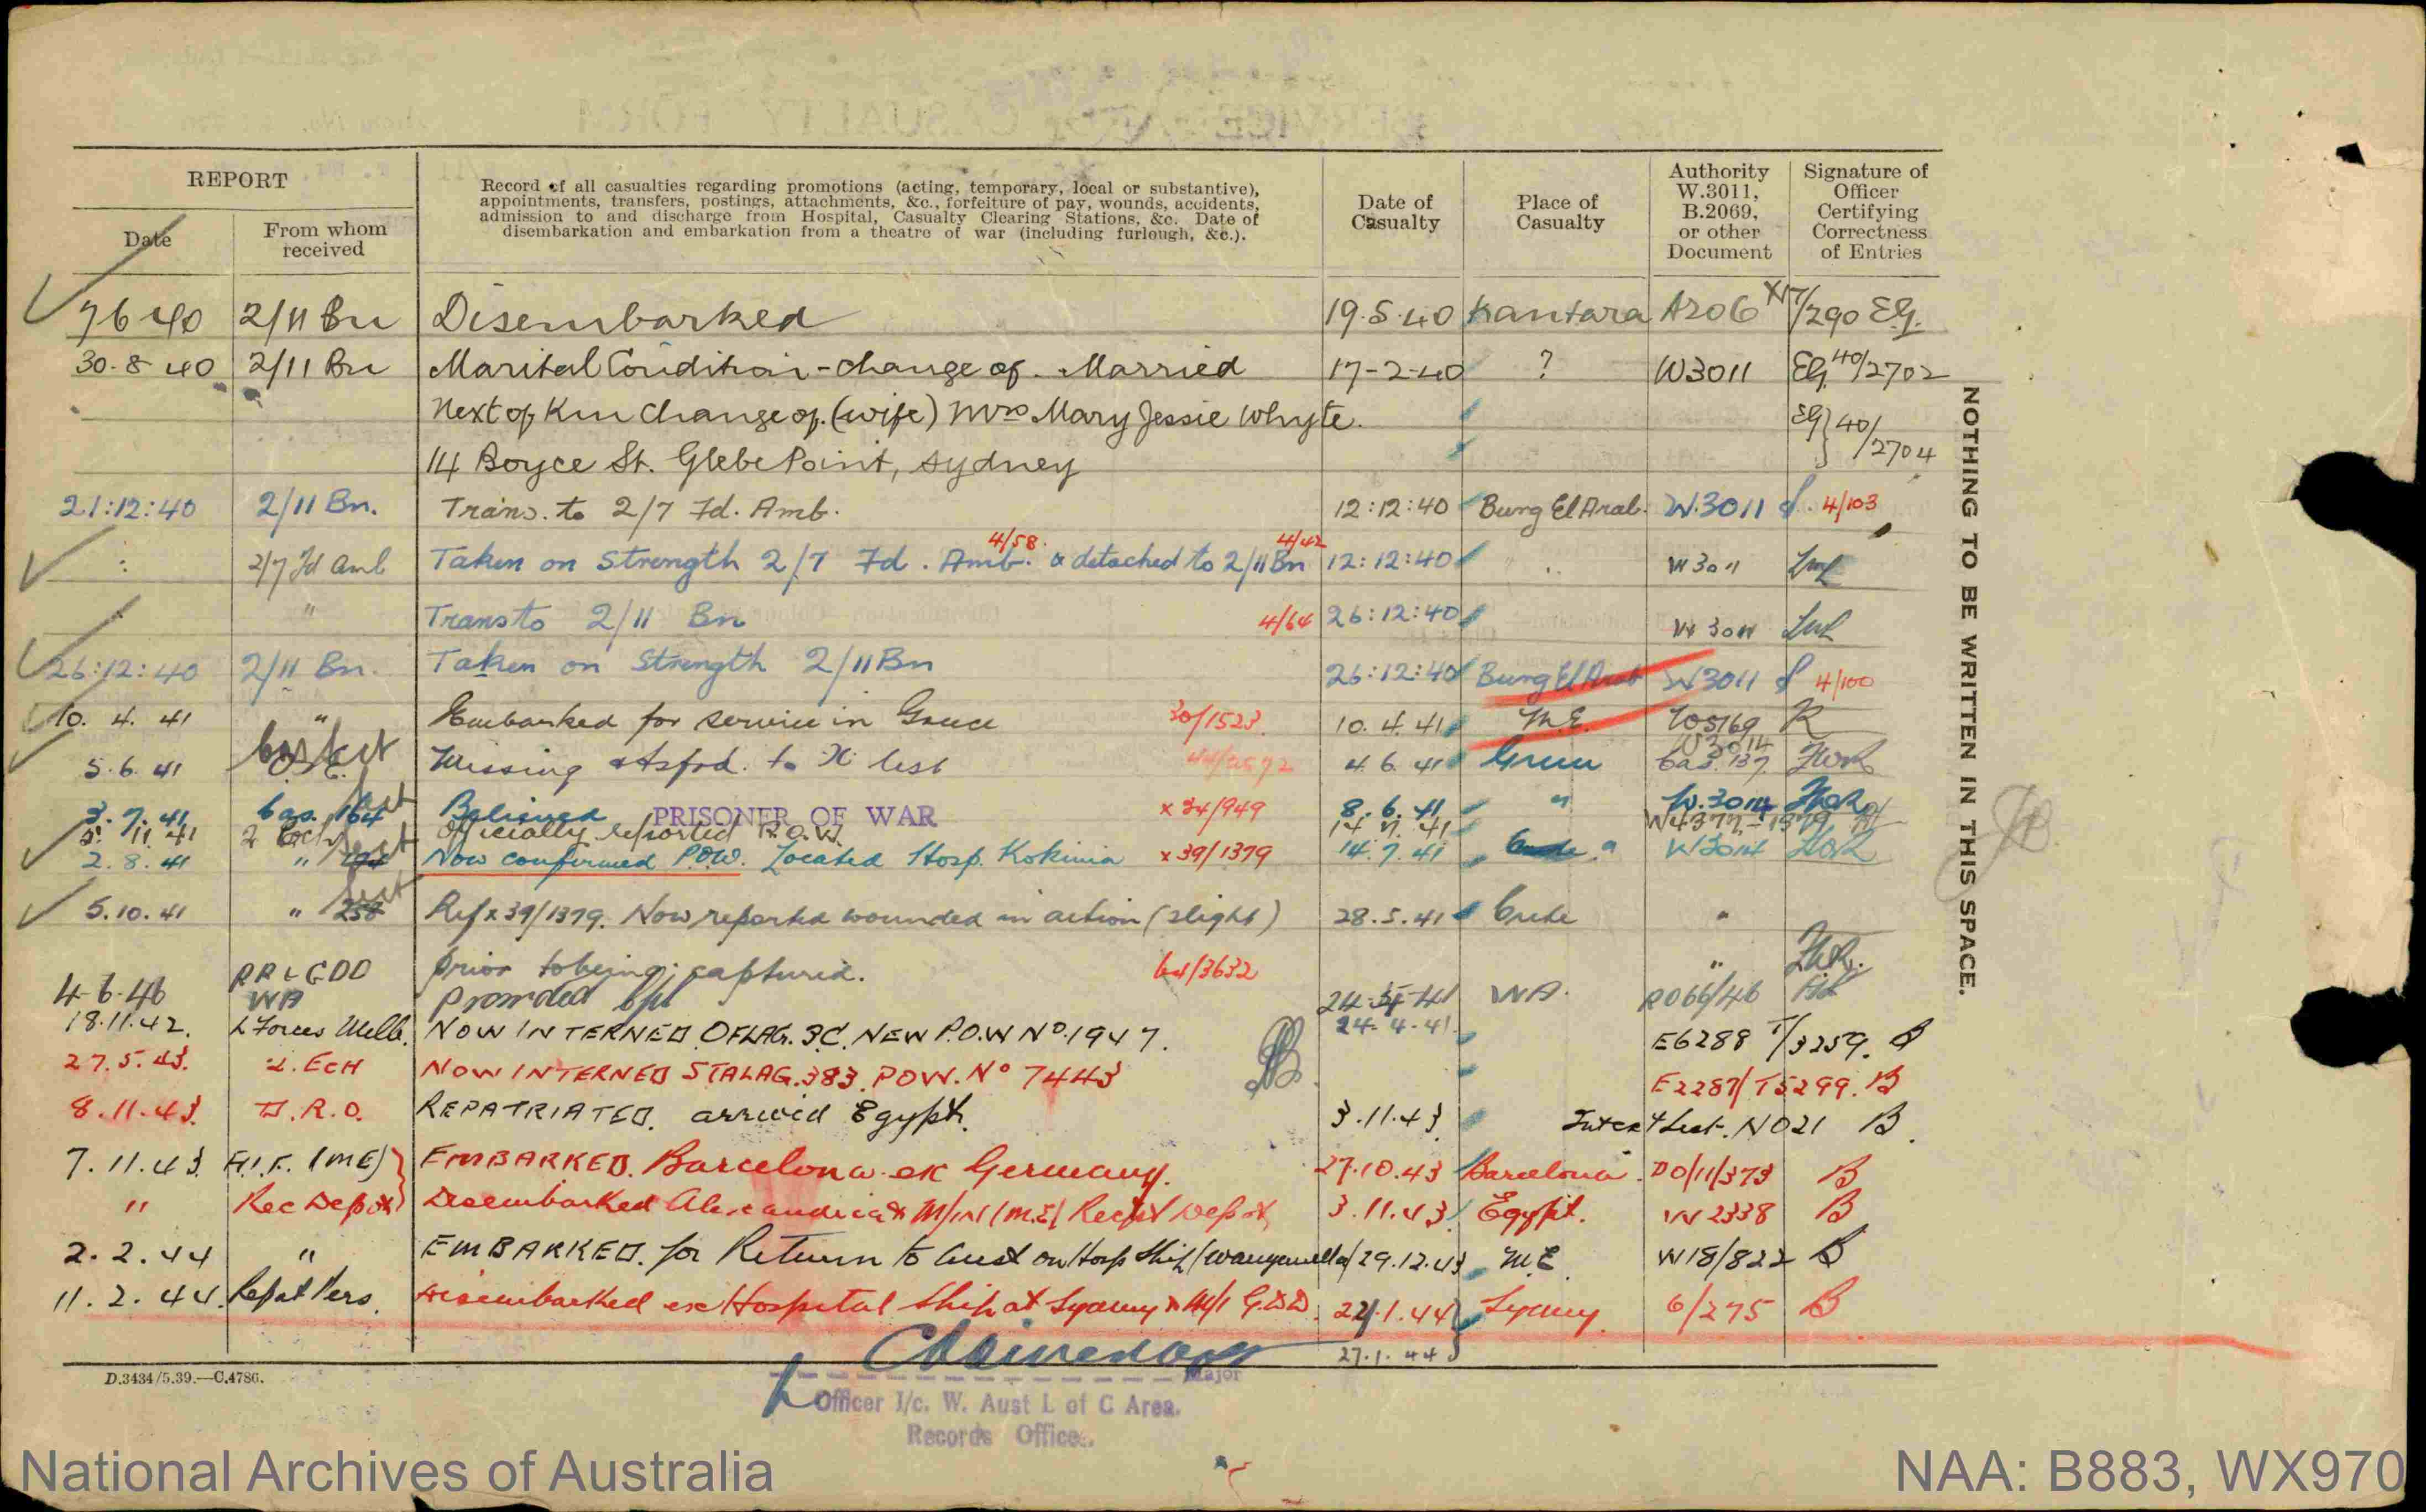 REPORT
Date
From whom received
Record of all casualties regarding promotions (acting, temporary, local or substantive),
appointments, transfers, postings, attachments, &c., forfeiture of pay, wounds, accidents,
admission to and discharge from Hospital, Casualty Clearing Stations, &c. Date of
disembarkation and embarkation from a theatre of war (including furlough, &c.).
Date of Casualty
Place of Casualty
Authority W.3011, B.2069, or other Document
Signature of Officer Certifying Correctness of Entries
7 6 40 2/11 Bn Disembarked 19.5.40 Kantara A206 X17/290 EG.
30-8-40 2/11 Bn Marital Condition - change of. Married 17-2-40 ? W3011 EG 40/2702
Next of Kin Change of. (wife) Mrs Mary Jessie Whyte. EG 40/2704
14 Boyce St. Glebe Point, Sydney
21:12:40 2/11 Bn. Trans. to 2/7 Fd. Amb. 12:12:40 Burg El Arab. W.3011 4/103
4/58. 4/42
2/7 Fd Amb Taken on Strength 2/7 Fd. Amb. & detached to 2/11 Bn 12:12:40 W3011
" Trans to 2/11 Bn 4/64 26:12:40 W3011
26:12:40 2/11 Bn. Taken on Strength 2/11 Bn 26:12:40 Burg El Arab W3011 4/100
10. 4. 41 " Embarked for service in Greece 30/1523 10. 4. 41 M.E. R
5.6.41 Missing & tsfrd. to X list 4.6.41 Greece W3014 Cas. 137
3.7.41 Cas. 164 Believed PRISONER OF WAR x 34/949 8.6.41 " W.3014
5. 11 41 2 Ech Officially reported P.O.W. 14 7. 41 W4377-1379
2.8.41 " Now confirmed P.O.W. Located Hosp. Kokinia x 39/1379 14.7.41 " W3014
5.10.41 " 258 Ref x 39/1379. Now reported wounded in action (slight) 28.5.41 Crete "
prior to being captured. 64/3632 "
4-6-46 RRLGDD WA Promoted Cpl 24-4-41 WA. RO66/46
24-4-41
18.11.42. L Forces Melb. NOW INTERNED OFLAG. 3C. NEW P.O.W No. 1947. E6288 T/3259. B
27.5.43. 2. ECH NOW INTERNED STALAG. 383. POW. No 7443 E2287/T5299. B
8.11.43. D.R.O. REPATRIATED. arrived Egypt. 3.11.43 List. NO21 B.
7.11.43 A.I.F. (ME) EMBARKED. Barcelona. ex Germany. 27.10.43 Barcelona. DO/11/373 B
" Rec Depot Disembarked Alexandria & M/IN (M.E) Recpt Depot 3.11.43 Egypt. W2338 B
2.2.44 " EMBARKED. for Return to Aust on Hosp Ship (Wanganella) 29.12.43 M.E. W18/822 B
11.2.44. Repat Pers. Disembarked ex Hospital Ship at Sydney & M/I G.D.D. 22.1.44 Sydney. 6/275 B
27.1.44
NOTHING TO BE WRITTEN IN THIS SPACE.
D.3434/5.39.—C.4786.
Major
Officer I/c. W. Aust L of C Area.
Records Office.
National Archives of Australia
NAA: B883, WX970